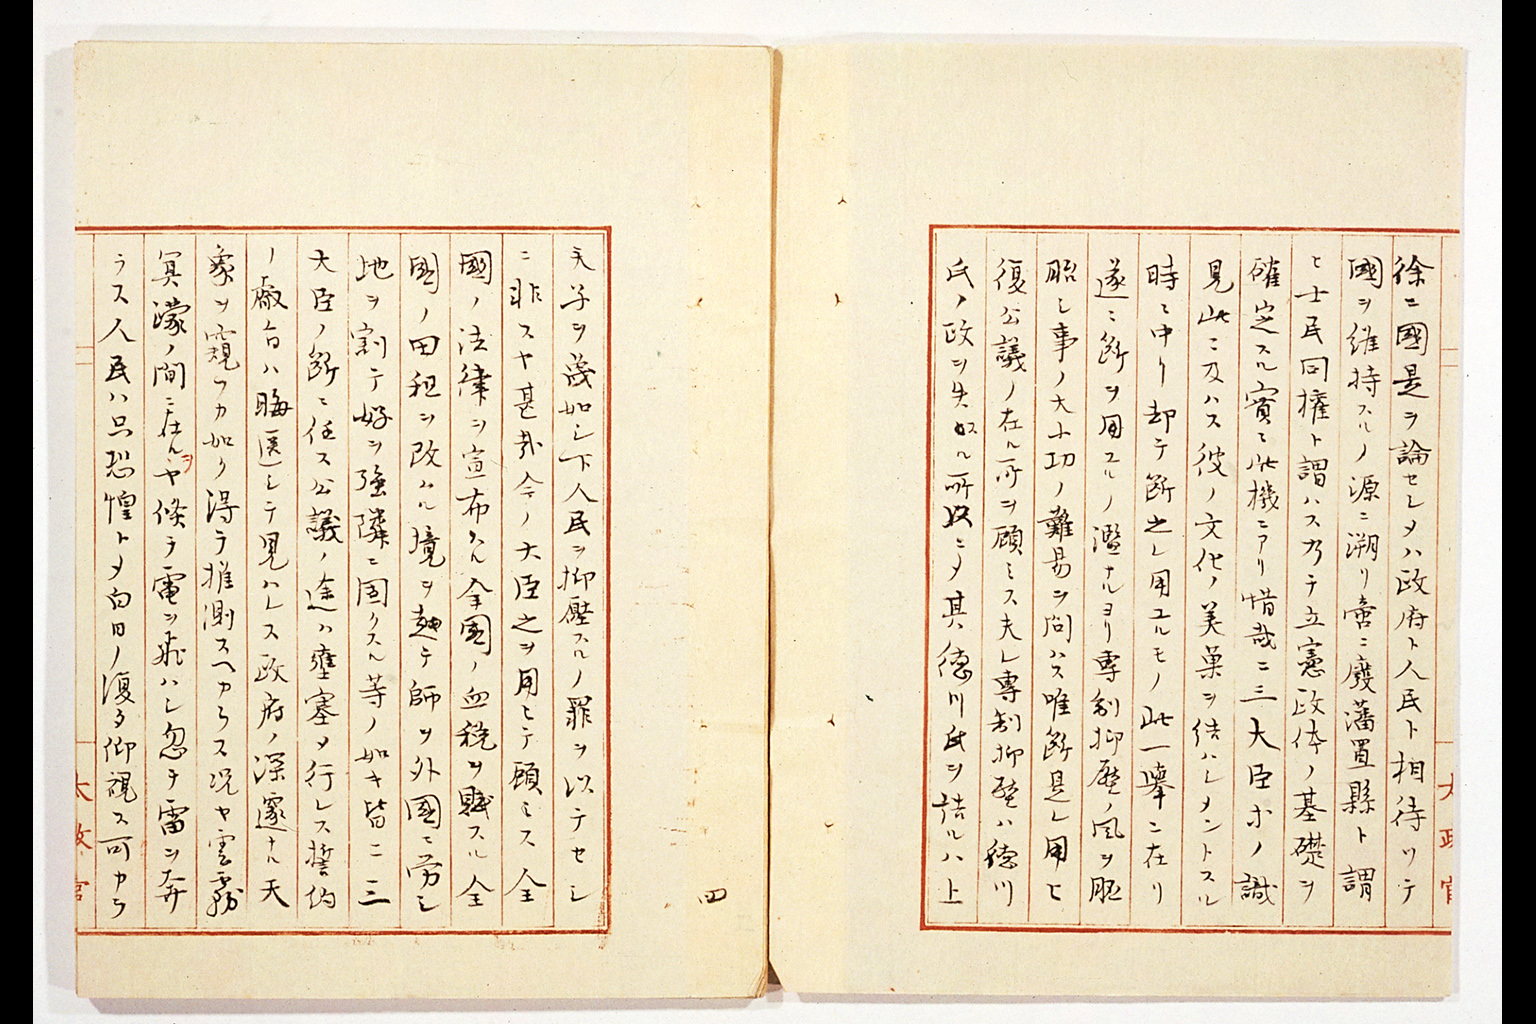 徐ニ國是ヲ論セシメハ政府ト人民ト相待ツテ
國ヲ維持スルノ源ニ溯リ啻ニ廢藩置縣ト謂
ヒ士民同權ト謂ハス乃チ立憲政体ノ基礎ヲ
確定スル實ニ此機ニアリ惜哉ニ三大臣ホノ識
見此ニ及ハス彼ノ文化ノ美菓ヲ結ハシメントスル
時ニ中リ却テ断之レ用ユルモノ此一擧ニ在リ
遂ニ断ヲ用ユルノ濫ナルヨリ專制抑壓ノ風ヲ胚
胎シ事ノ大小功ノ難易ヲ問ハス唯断是レ用ヒ
復公議ノ在ル所ヲ顧ミス夫レ專制抑壓ハ徳川
氏ノ政ヲ失スル所以ニメ其徳川氏ヲ詰ルハ上
天子ヲ蔑如シ下人民ヲ抑壓スルノ罪ヲ以テセシ
ニ非スヤ甚哉今ノ大臣之ヲ用ヒテ顧ミス全
國ノ法律ヲ宣布スル全國ノ血税ヲ賦スル全
國ノ田租ヲ改ムル境ヲ越テ師ヲ外國ニ労シ
地ヲ割テ好ヲ強隣ニ固クスル等ノ如キ皆ニ三
大臣ノ断ニ任ス公議ノ途ハ壅塞メ行レス誓約
ノ廠旨ハ晦匿シテ見ハレス政府ノ深邃ナル天
象ヲ窺フカ如ク得テ推測スヘカラス况ヤ雲霧
冥濛ノ間ニ在ルヲヤ倏チ電ヲ飛ハシ忽チ雷ヲ奔
ラス人民ハ只恐惶トメ白日ノ復タ仰視ス可カラ
四
太政官
太政官